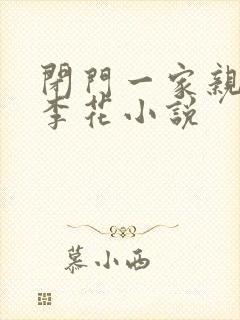 閉門一家親
李花小説
慕小西